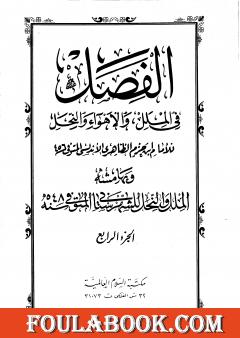 الفصل
فى الملل والاهواء والنحل
للامام ابن حزم الظاهرى الاندلسى المتوفى ٤٥٦
وبهامشه
الملل والنحل للشهرستانى المتوفى سنة ٥٤٨
الجزء الرابع
مكتبة السلام العالمية
FOULABOOK.COM